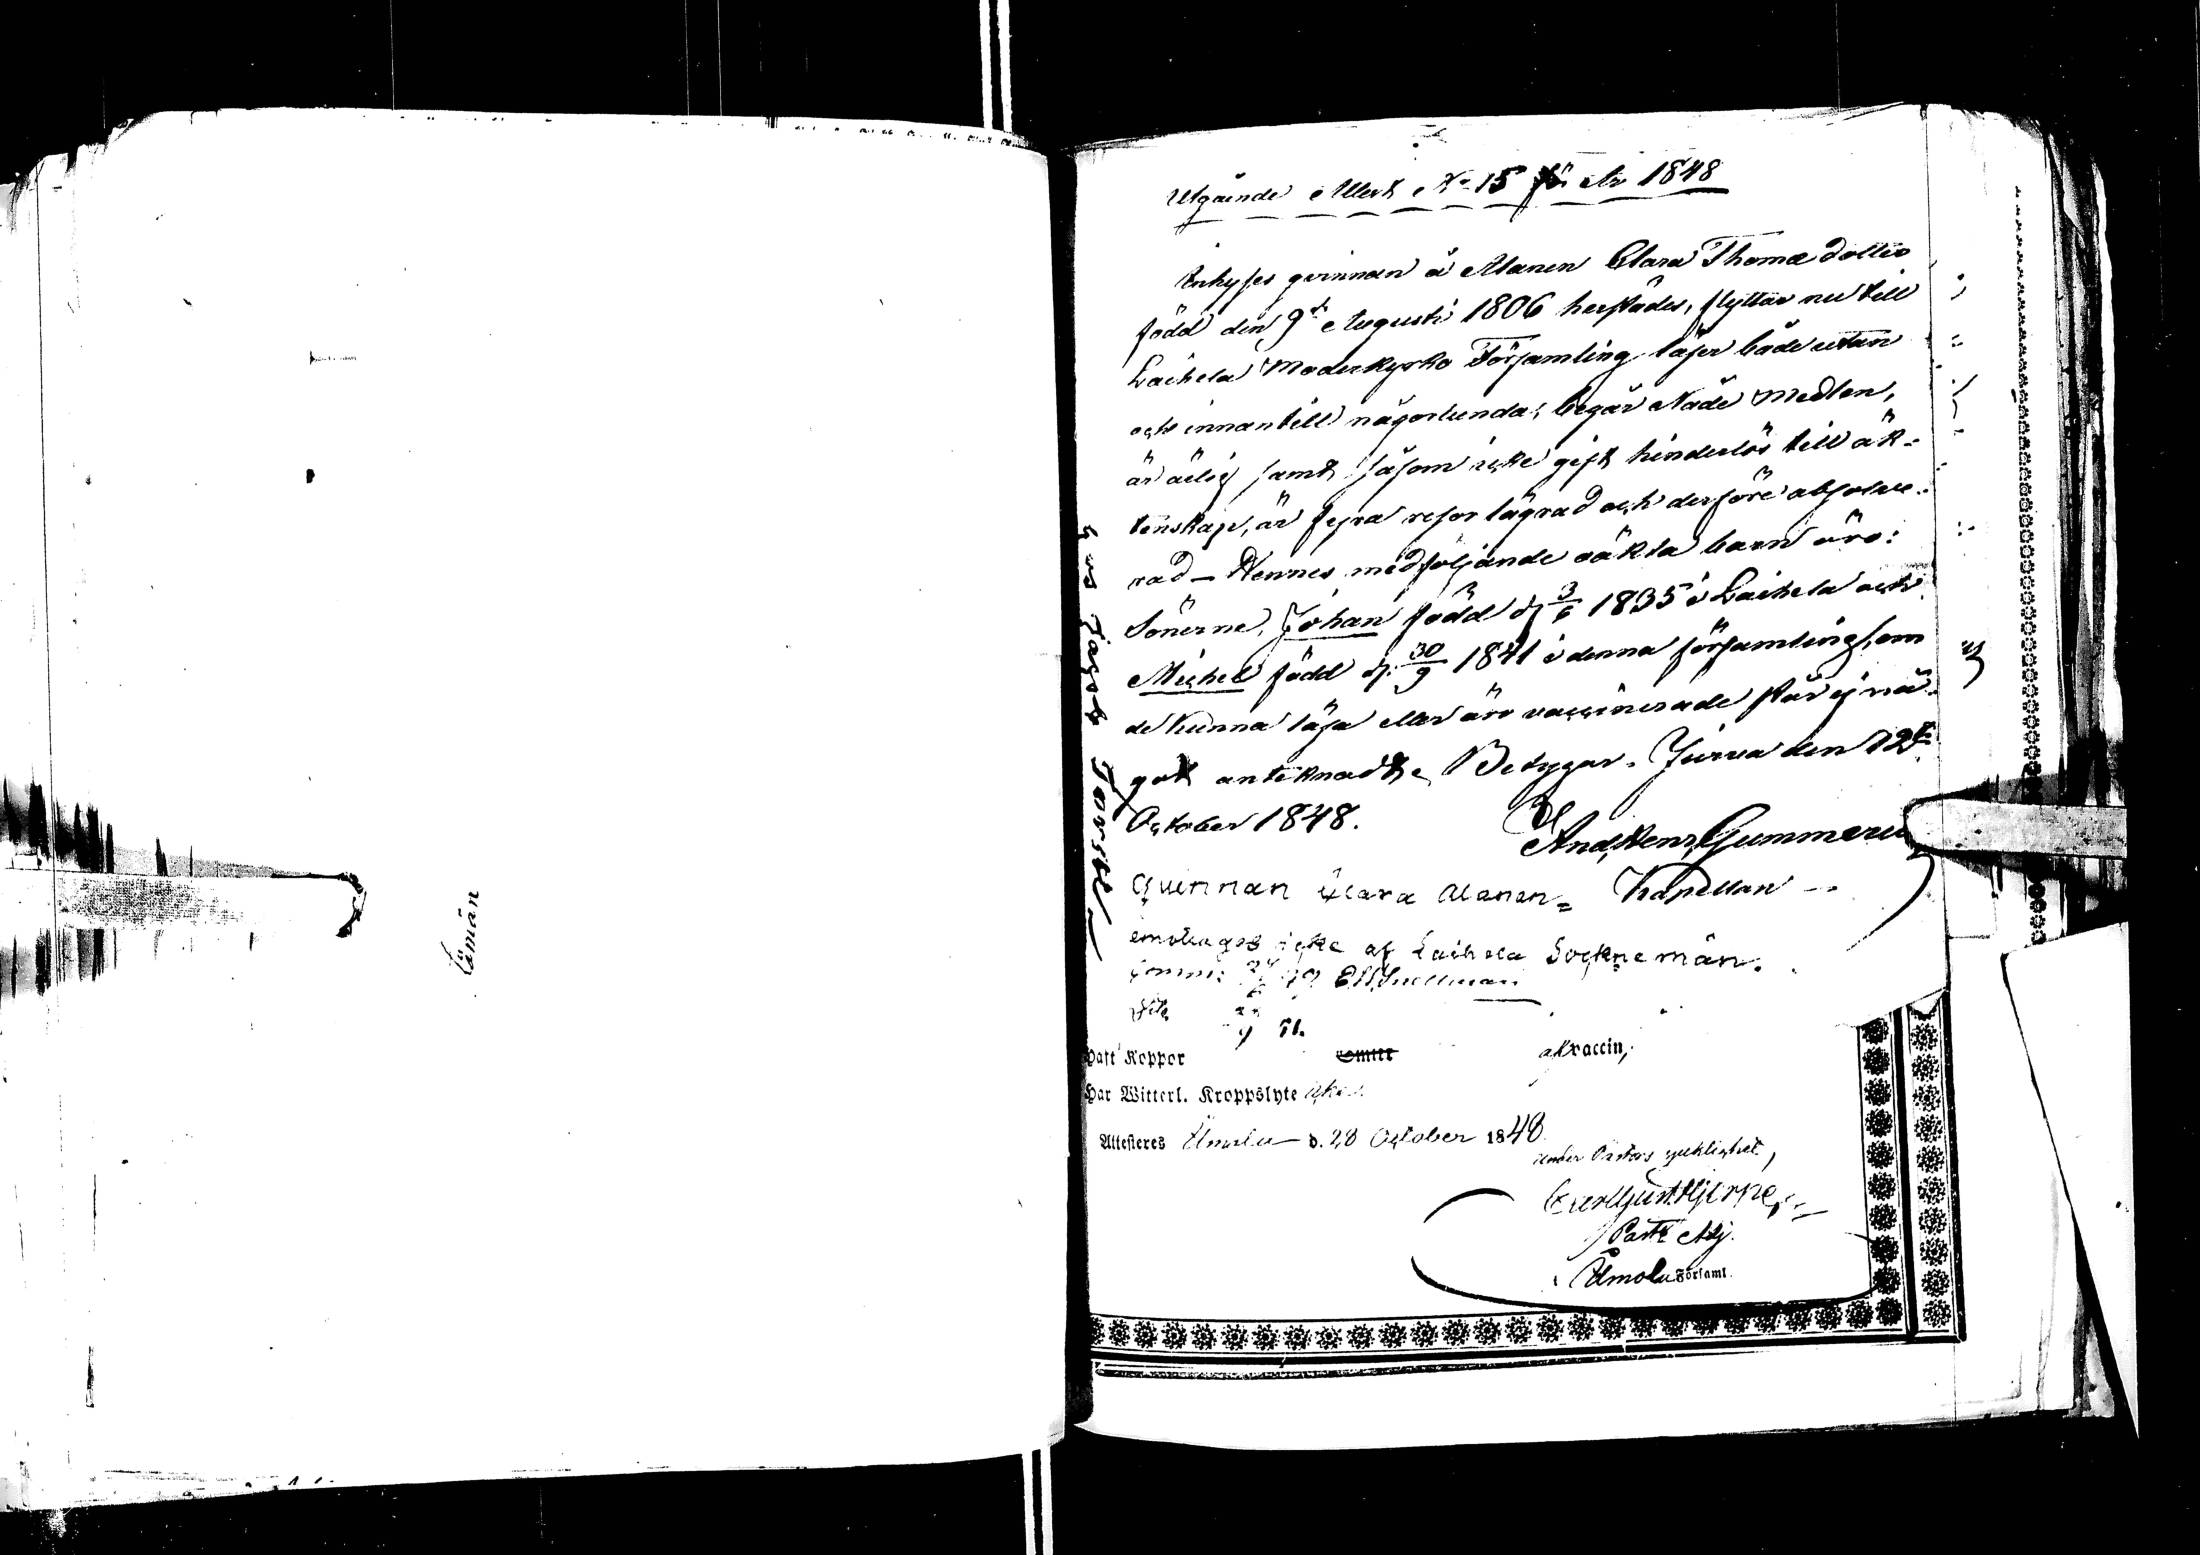 Utgående Attest No 15 för År 1848
Inhyses qvinnan å Alanen Clara Thomædotter
född den 9de Augusti 1806 herstädes, flyttar nu till
Laihela Moderkyrko Församling läser både utan
och innantill någorlunda, begår Nåde Medlen,
är ärlig samt såsom icke gift hinderlös till äk-
tenskap, är fyra resor lägrad och derföre absolve-
rad – Hennes medföljande oäkta barn äro:
Sönerne, Johan född d. 3/6 1835 i Laihela och
Michel född d. 30/9 1841 i denna församling, om
de kunna läsa eller äro vaccinerade står ej nå-
got anteknadt, Betygar. Jurva den 12te
October 1848.
And. Henr. Gummerus
Kapellan
Qvinnan Clara Alanen
emottages icke af Laihela Socknemän.
Snellman
hos Jacob Torskl
Lämän
Haft Koppor vaccin,
Har Witterl. Kroppslyte
Attesteres Ilmola d. 28 October 1848
under Pastors sjuklighet,
Past. Adj.
i Ilmola Församl.